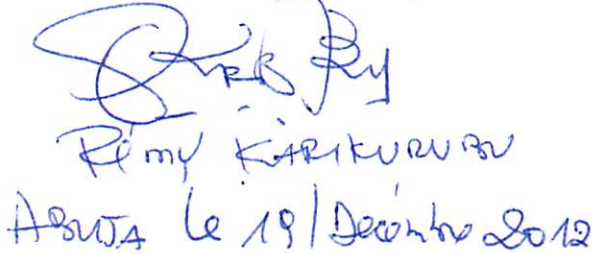 Rémy KARIKURUBU
ABUJA le 19/Décembre 2012